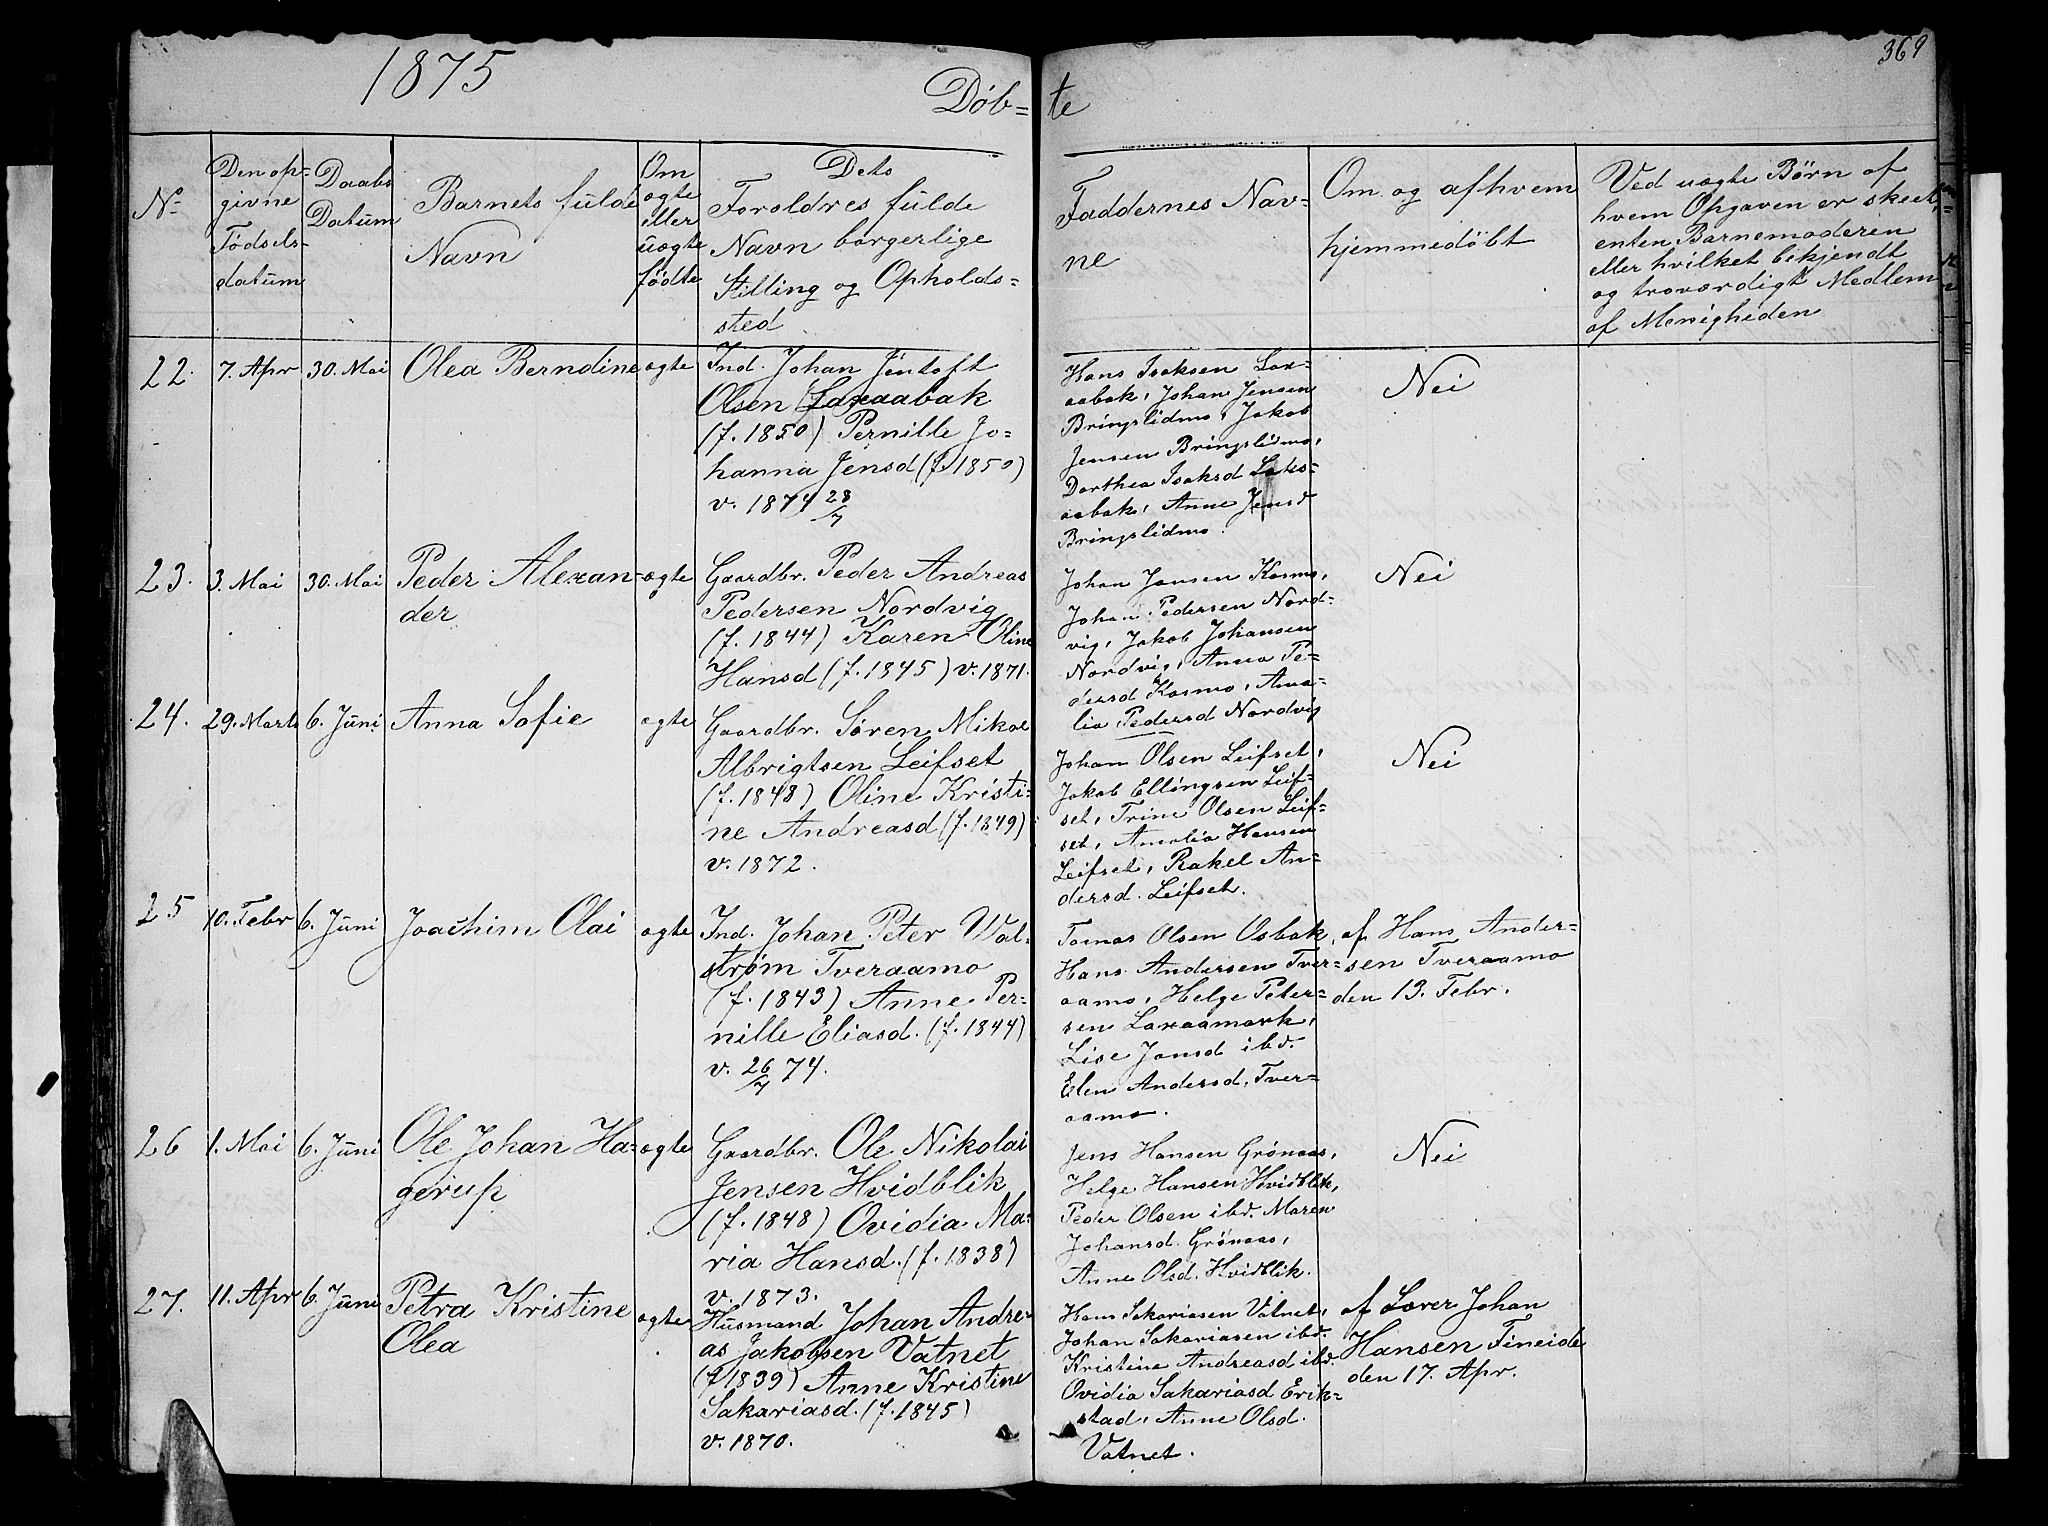 1875
Døb-
te
369
No
Den op-
givne
Fødsels-
datum
Daabs
Datum
Barnets fulde
Navn
Om
ægte
eller
uægte
fødte
Dets
Forældres fulde
Navn borgerlige
Stilling og Opholds-
sted
Faddernes Nav-
ne
Om og af hvem
hjemmedøbt
Ved uægte Børn af
hvem Opgaven er skeet,
enten Barnemoderen
eller hvilket bekjendt
og troværdigt Medlem
af Menigheden
22.
7. Apr
30. Mai
Olea Berndine
ægte
Ind. Johan Jentoft
Olsen Laxaabak
(f. 1850) Pernille Jo-
hanna Jensd (f. 1850)
v. 1874 28/7
Hans Isaksen Lax-
aabak, Johan Jensen
Bringslidmo, Jakob
Jensen Bringslidmo,
Dorthea Isaksd
aabak, Anne Jensd
Bringslidmo.
Nei
23.
3. Mai
30. Mai
Peder Alexan-
der
ægte
Gaardbr. Peder Andreas
Pedersen Nordvig
(f. 1844) Karen Oline
Hansd (f. 1845) v. 1871.
Johan Jansen Kosmo,
Johan Pedersen Nord-
vig, Jakob Johansen
Nordvig, Anna Pe-
dersd Kosmo, Ama-
lia Pedersd Nordvig
Nei
24.
29. Marts
6. Juni
Anna Sofie
ægte
Gaardbr. Søren Mikal
Albrigtsen Leifset
(f. 1848) Oline Kristi-
ne Andreasd (f. 1849)
v. 1872.
Johan Olsen Leifset,
Jakob Ellingsen Leif-
set, Trine Olsen Leif-
set, Amalia Hansen
Leifset, Rakel An-
dersd. Leifset.
Nei
25
10. Febr
6. Juni
Joachim Olai
ægte
Ind. Johan Peter Wal-
strøm Tveraamo
(f. 1843) Anne Per-
nille Eliasd. (f. 1844)
v. 26/7 74.
Tomas Olsen Osbak,
Hans Andersen Tver-
aamo, Helge Peter-
sen Laxaamark,
Lise Jonsd ibd.
Elen Andersd. Tver-
aamo.
af Hans Ander-
sen Tveraamo
den 13. Febr.
26
1. Mai
6. Juni
Ole Johan Ha-
gerup
ægte
Gaardbr. Ole Nikolai
Jensen Hvidblik
(f. 1848) Ovidia Ma-
ria Hansd. (f. 1838)
v. 1873.
Jens Hansen Grønaas,
Helge Hansen Hvidblik,
Peder Olsen ibd. Maren
Johansd. Grønaas,
Anne Olsd. Hvidblik.
Nei
27.
11. Apr
6. Juni
Petra Kristine
Olea
ægte
Husmand Johan Andre-
as Jakobsen Vatnet
(f 1839) Anne Kristine
Sakariasd. (f. 1845)
v. 1870.
Hans Sakariasen Vatnet,
Johan Sakariasen ibd.
Kristine Andreasd ibd.
Ovidia Sakariasd Erik-
stad, Anne Olsd.
Vatnet.
af Lærer Johan
Hansen Fineide
den 17. Apr.